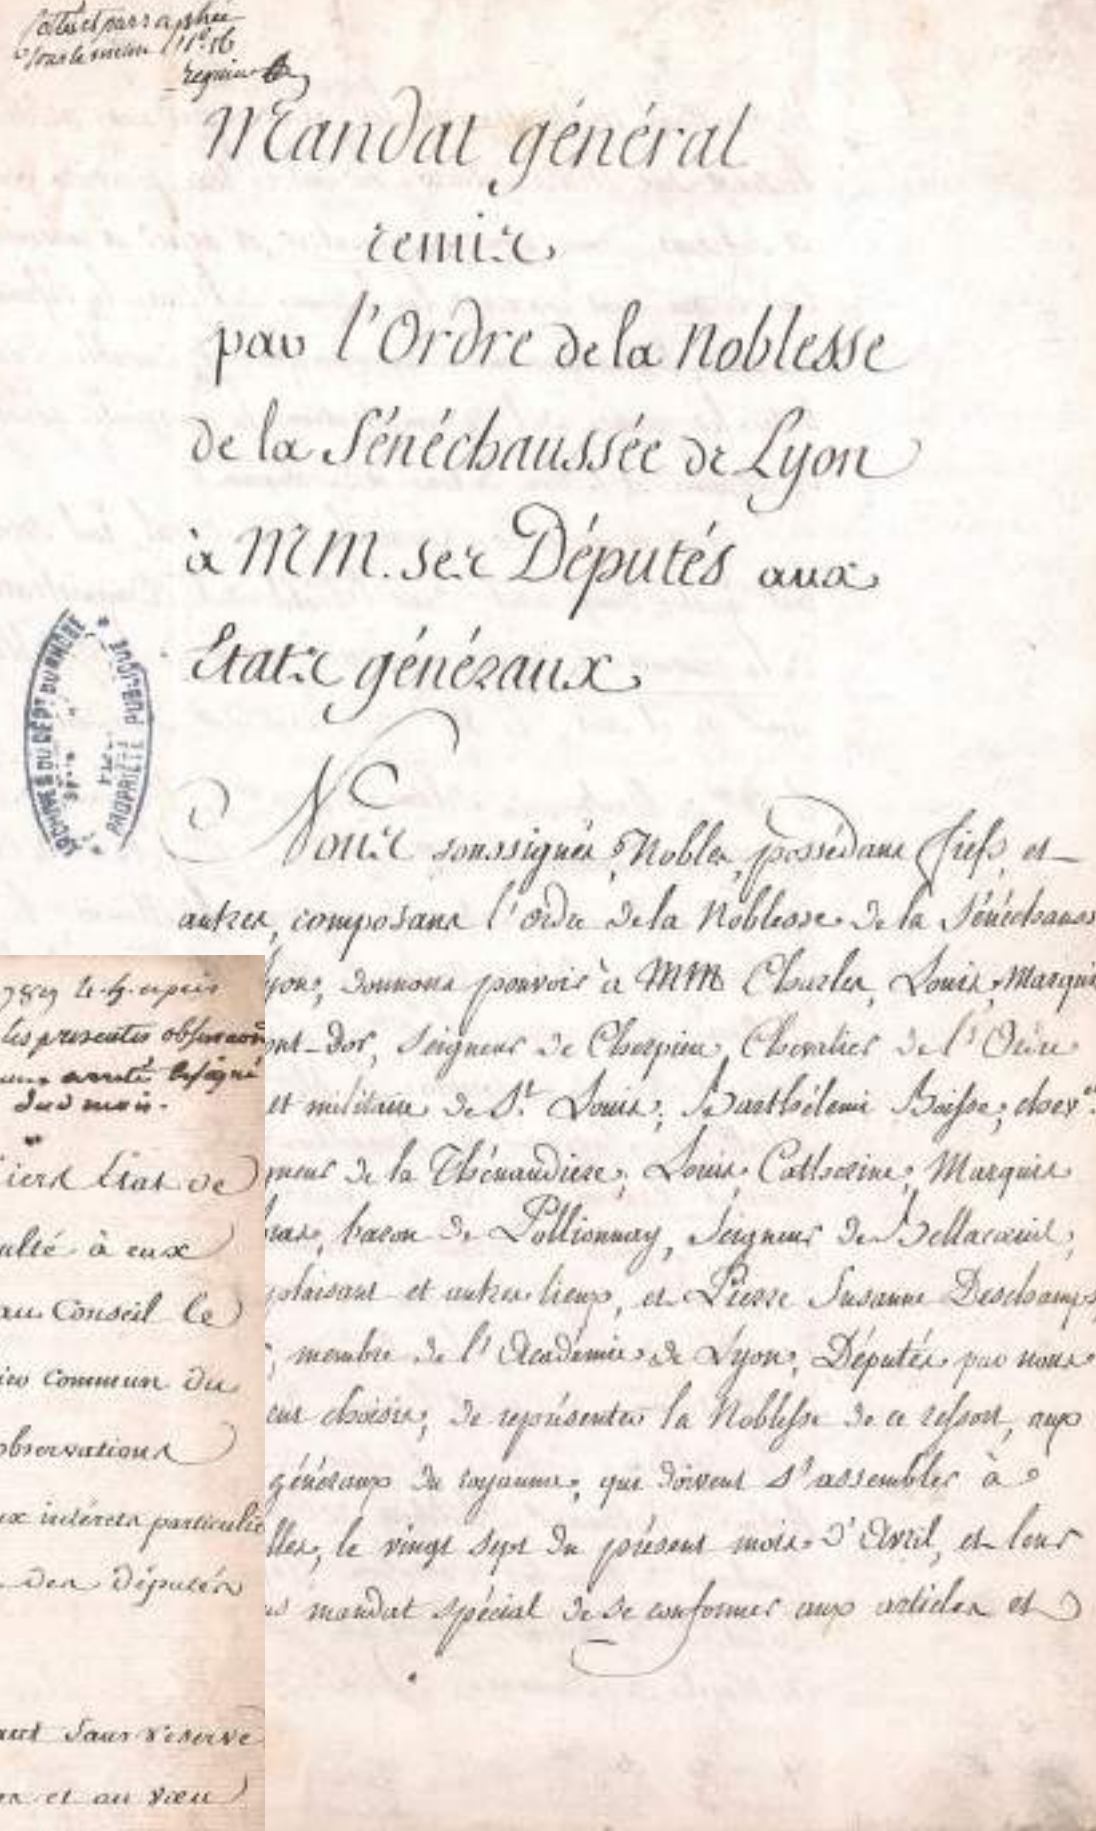 cotté et paraphée
sous le même n.° 16
Mandat général
remis
par l'Ordre de la Noblesse
de la Sénéchaussée de Lyon
à MM. ses Députés aux
Etats généraux
ARCHIVES DU DEPT DU RHÔNE
PROPRIÉTÉ PUBLIQUE
Nous soussignés, Nobles, possédans fiefs, et
autres, composans l'ordre de la Noblesse de la Sénéchauss
yon, donnons pouvoir à MM Charles, Louis, Marquis
ont-Dor, Seigneur de Cherpieu, Chevalier de l'Ordre
et militaire de St. Louis, Barthélemi Boisse, chever.
gneur de la Thénaudiere, Louis Catherine, Marquis
baron de Pollionnay, Seigneur de Bellacueil,
plaisant et autres lieux, et Pierre Susanne Deschamps,
, membre de l'Académie de Lyon, Députés par nous
choisis, de représenter la Noblesse de ce ressort, aux
généraux du royaume, qui doivent s'assembler à
lles, le vingt sept du présent mois d'Avril, et leur
mandat spécial de se conformer aux articles et
789
les presentes observaon
arreté
dud mois.
iers Etat de
ulté à eux
au Conseil le
commun du
observations
ux intérets particulie
des Députés
sans réserve
et au vœu